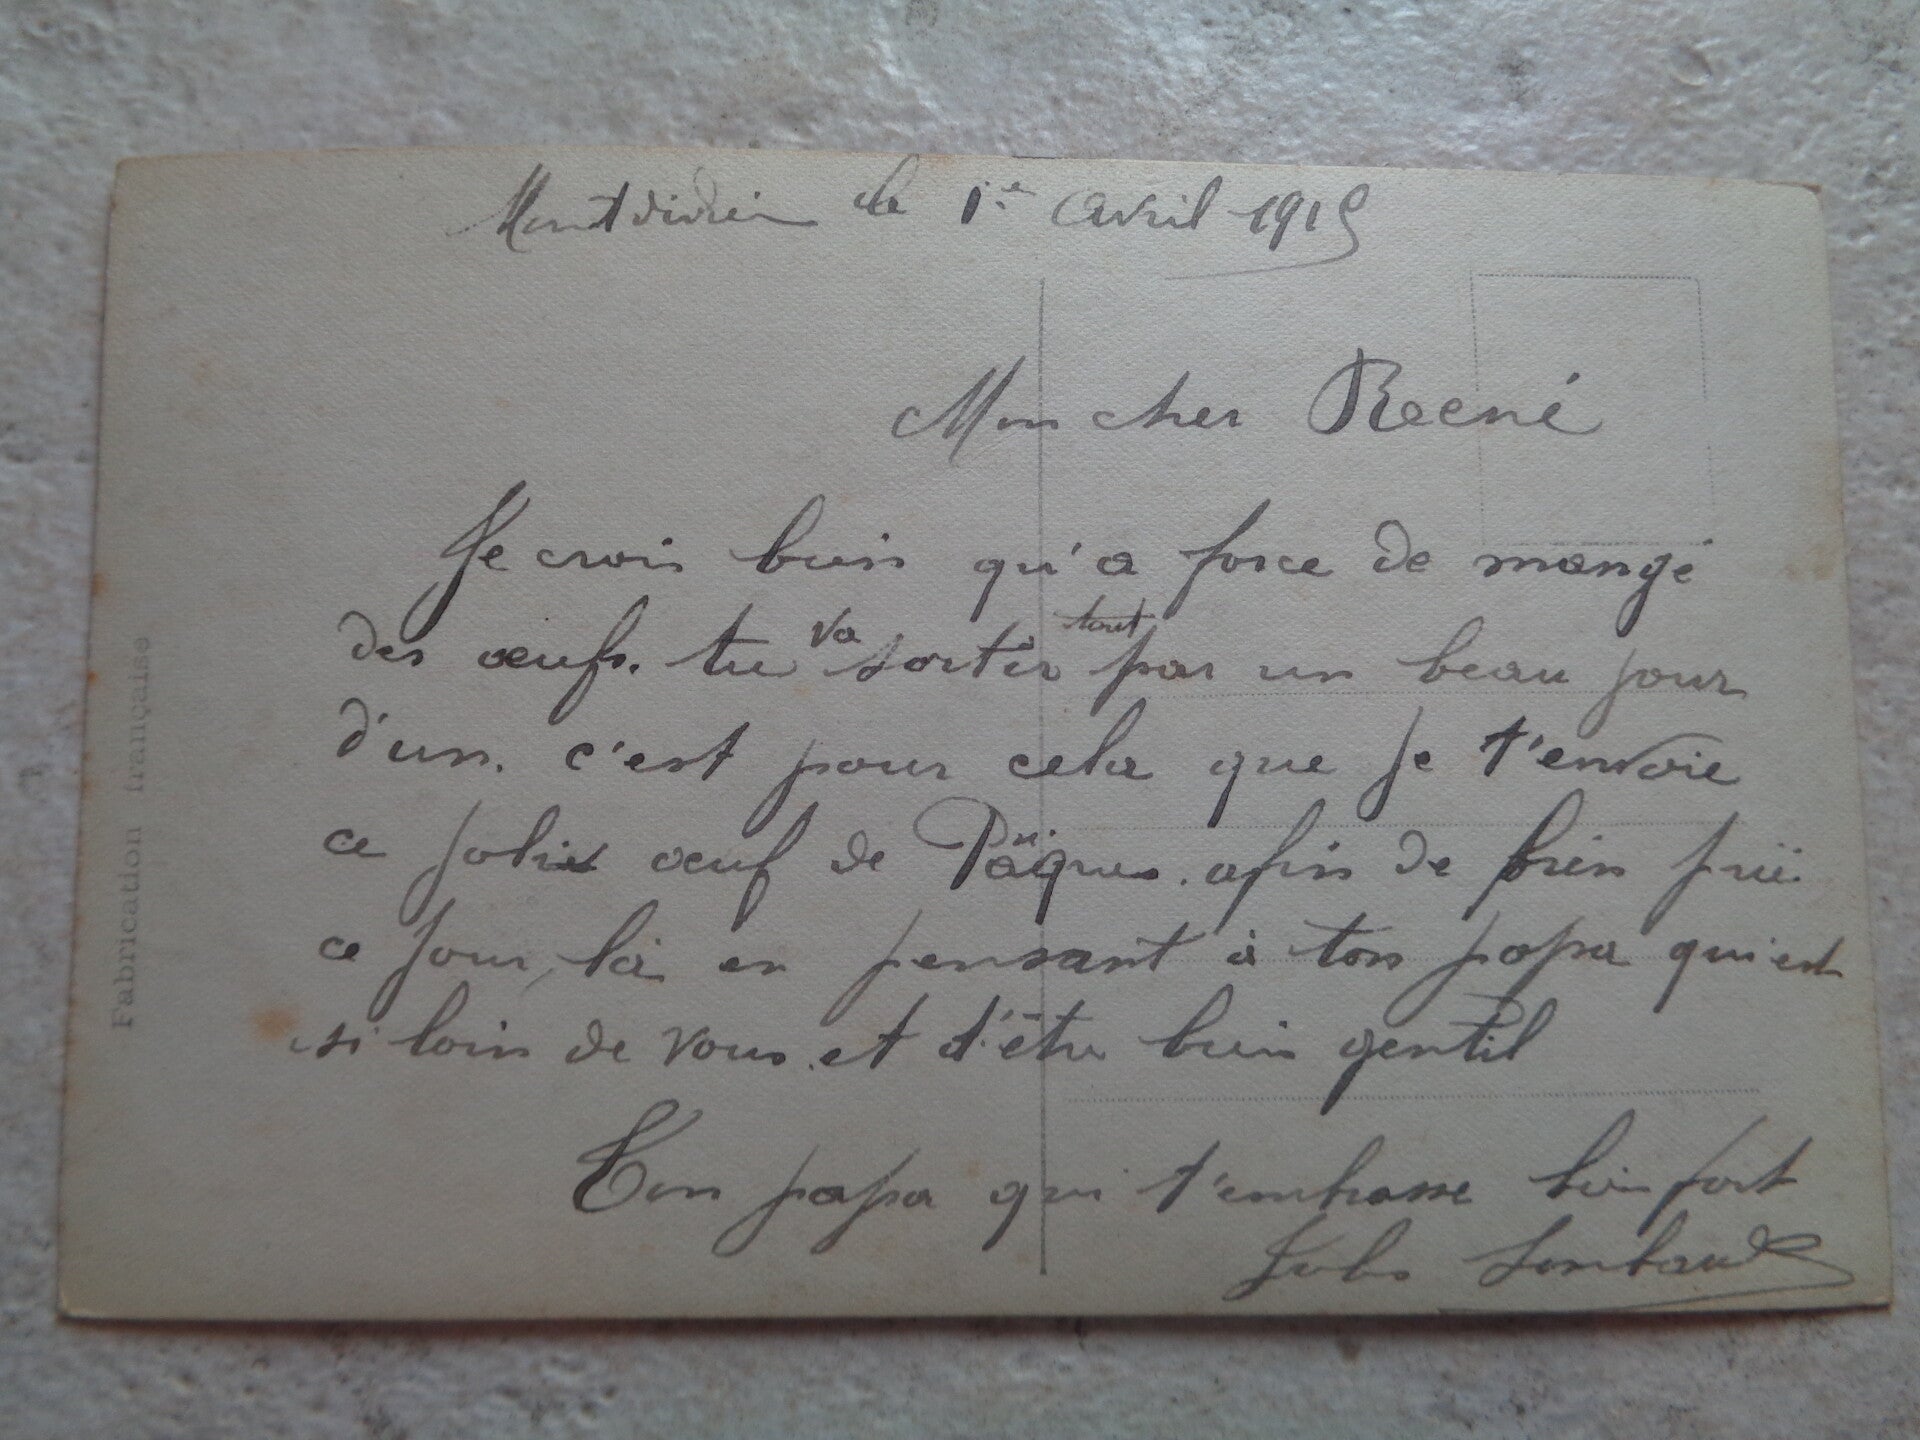 Montdidier le 1er Avril 1915
Mon cher Reené
Je crois bien qu'a force de mangé
des œufs. tu va sortir tout par un beau jour
d'un. c'est pour cela que je t'envoie
ce jolie œuf de Pâques. afin de bien priï
ce jour, là en pensant à ton papa qui est
si loin de vous. et d'être bien gentil
Ton papa qui t'embrasse bien fort
Jules
Fabrication française